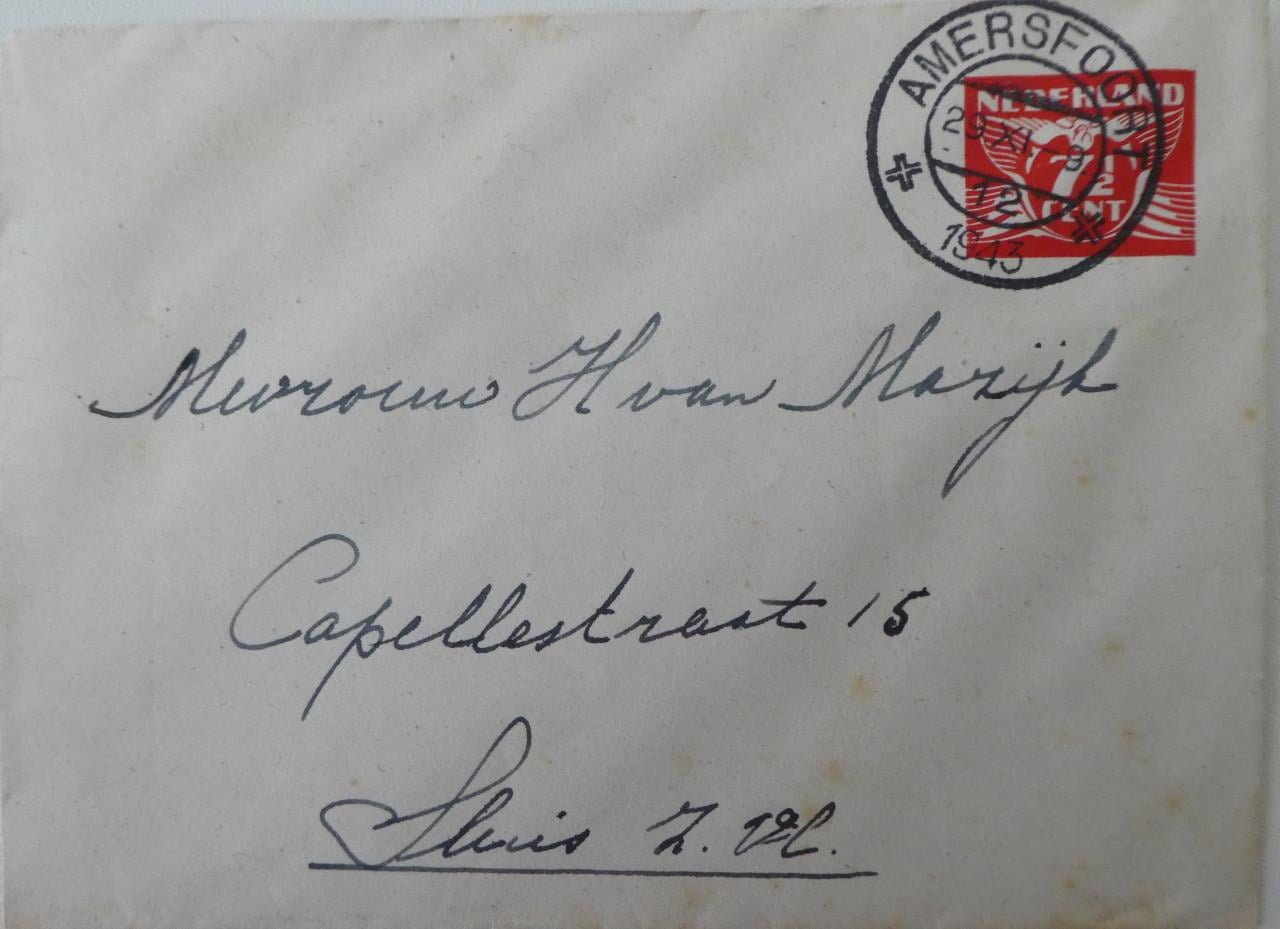 AMERSFOORT
29.XI-9
12
1943
NEDERLAND
7½
CENT
Mevrouw H van Marijk
Capellestraat 15
Sluis Z.Vl.